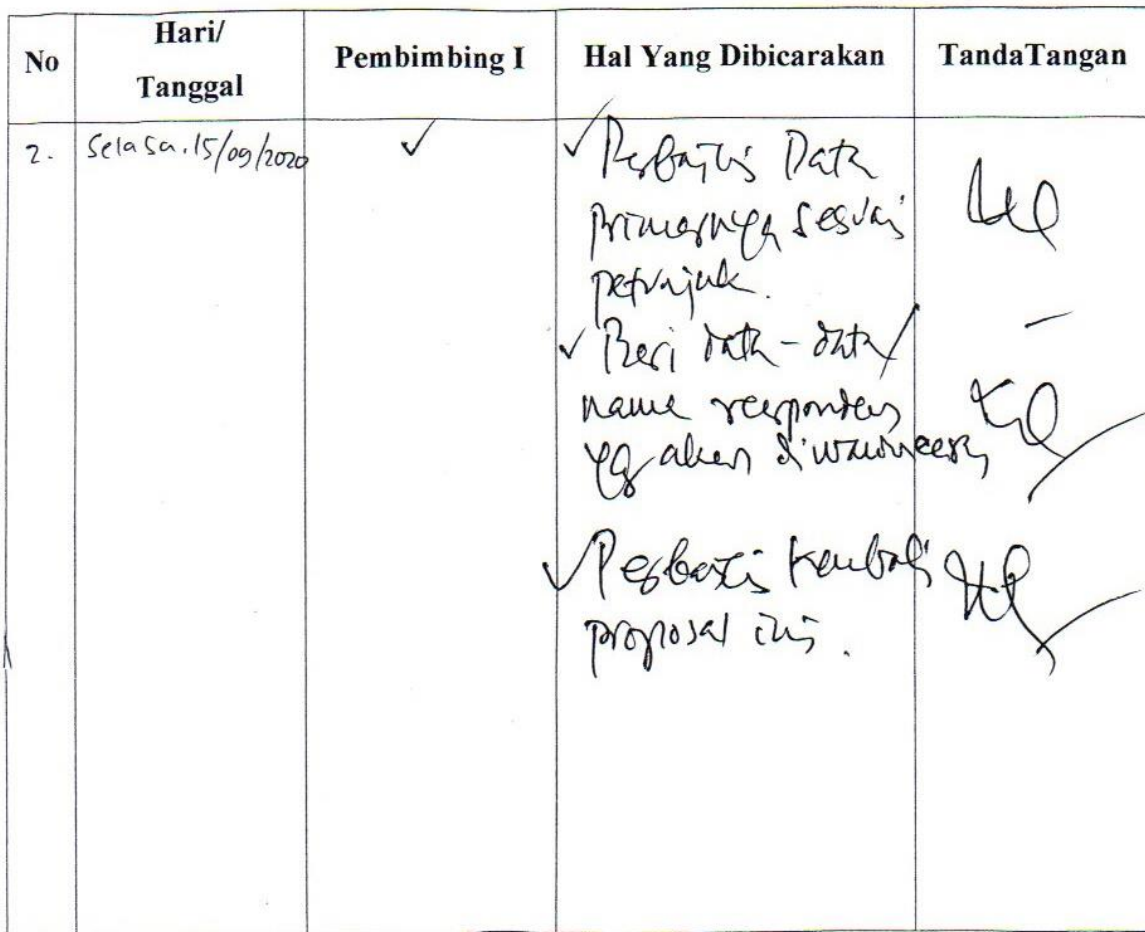 No
Hari/
Tanggal
Pembimbing I
Hal Yang Dibicarakan
TandaTangan
2.
Selasa. 15/09/2020
✓
✓ Perbaiki Data
primernya sesuai
petunjuk.
✓ Beri data-data/
nama responden
yg akan diwawancara
✓ Perbaiki kembali
proposal ini.